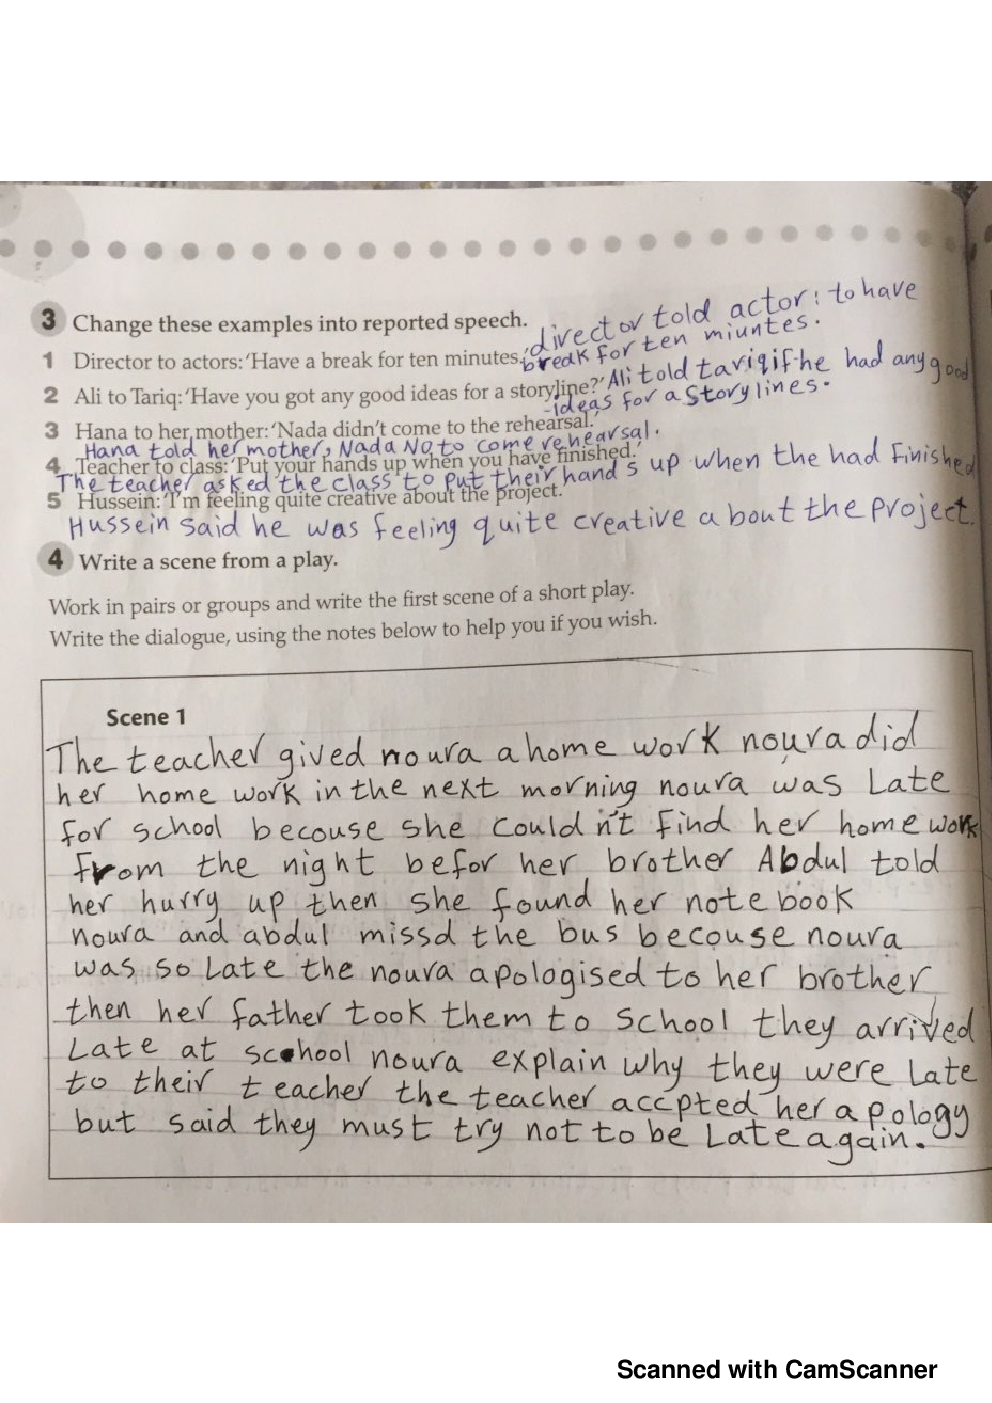 3 Change these examples into reported speech.
director told actor: to have
1 Director to actors: 'Have a break for ten minutes.'
break for ten miuntes.
2 Ali to Tariq: 'Have you got any good ideas for a storyline?'
Ali told tariq if he had any good
-ideas for a Story lines.
3 Hana to her mother: 'Nada didn't come to the rehearsal.'
Hana told her mother, Nada No to come rehearsal.
4 Teacher to class: 'Put your hands up when you have finished.'
The teacher asked the class to put their hands up when the had Finished
5 Hussein: 'I'm feeling quite creative about the project.'
Hussein said he was feeling quite creative about the project.
4 Write a scene from a play.
Work in pairs or groups and write the first scene of a short play.
Write the dialogue, using the notes below to help you if you wish.
Scene 1
The teacher gived noura a home work noura did
her home work in the next morning noura was Late
for school becouse she couldn't find her home work
From the night befor her brother Abdul told
her hurry up then she found her note book
noura and abdul missd the bus becouse noura
was so Late the noura apologised to her brother
then her father took them to school they arrived
Late at school noura explain why they were late
to their teacher the teacher accpted her apology
but said they must try not to be Late again.
Scanned with CamScanner